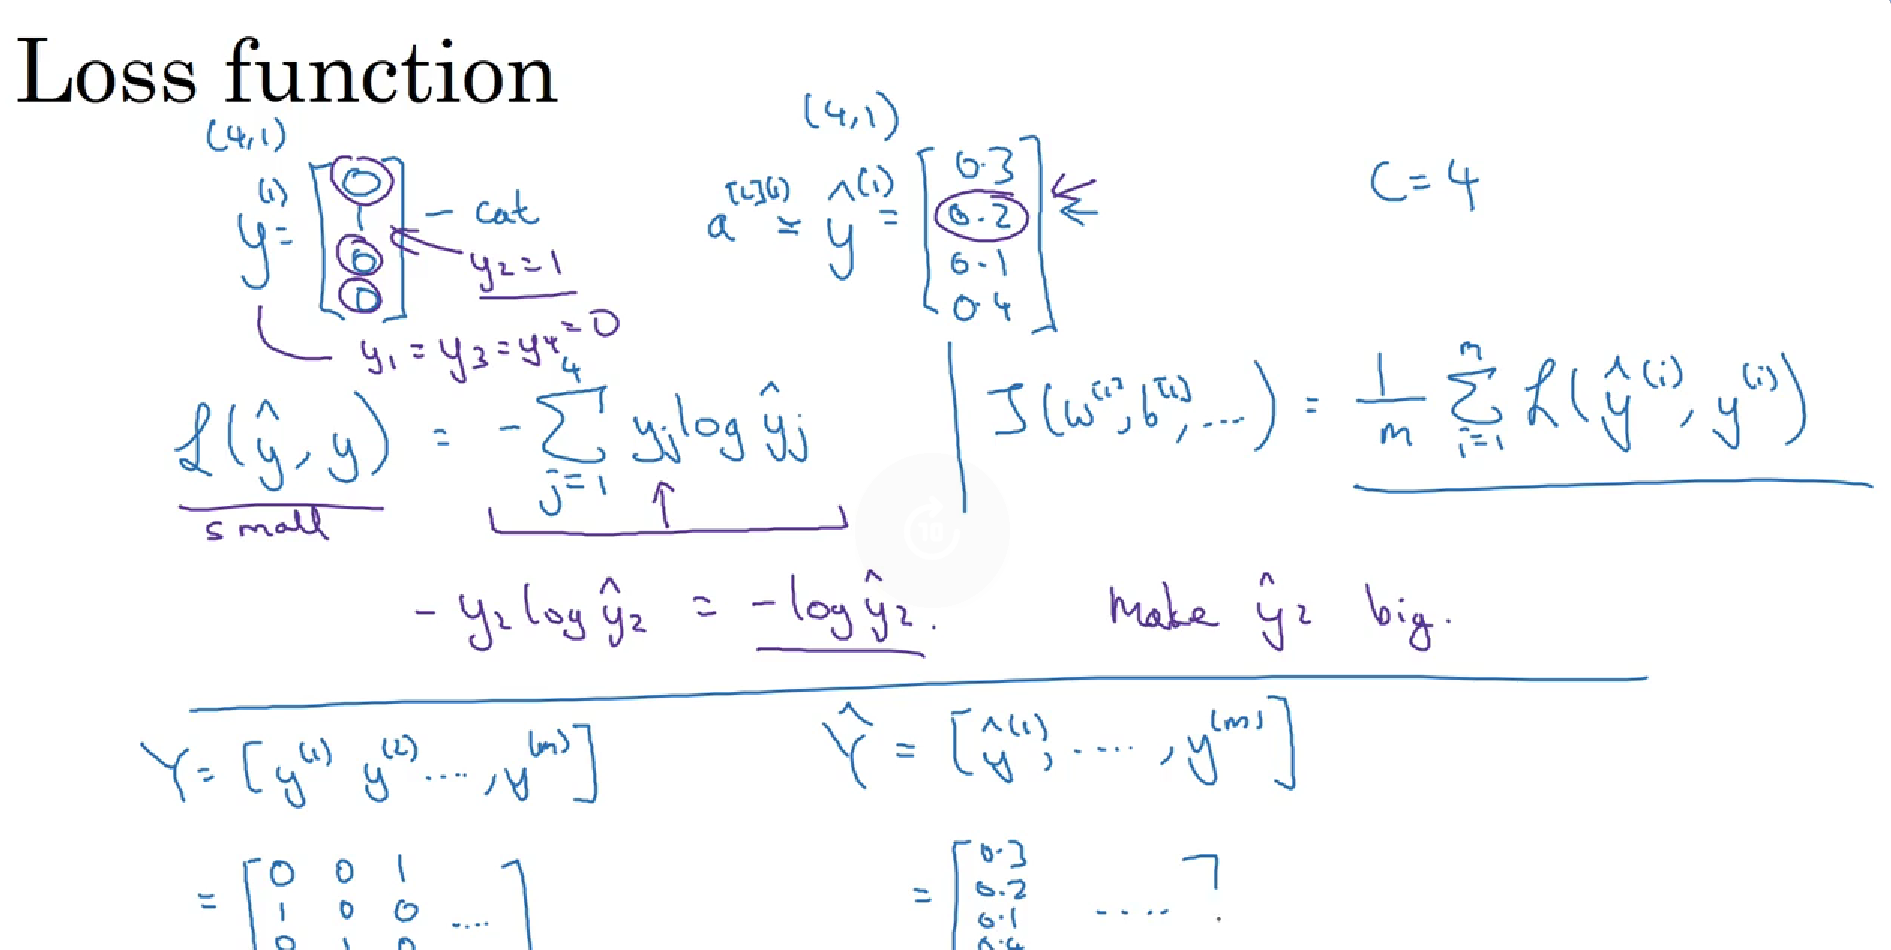 Loss function
(4,1)
y^(1) = [0 1 0 0] - cat
y₂ = 1
y₁ = y₃ = y₄ = 0
(4,1)
a^[L](1) = ŷ^(1) = [0.3 0.2 0.1 0.4]
C = 4
ℒ(ŷ, y) = - Σ_{j=1}^{4} y_j log ŷ_j
small
J(w^[1], b^[1], ...) = 1/m Σ_{i=1}^{m} ℒ(ŷ^(i), y^(i))
10
- y₂ log ŷ₂ = - log ŷ₂. Make ŷ₂ big.
Y = [y^(1) y^(2) ...., y^(m)]
Ŷ = [ŷ^(1), ...., y^(m)]
= [0 0 1
1 0 0 ....
0 1 0
= [0.3
0.2
0.1 ....
0.4